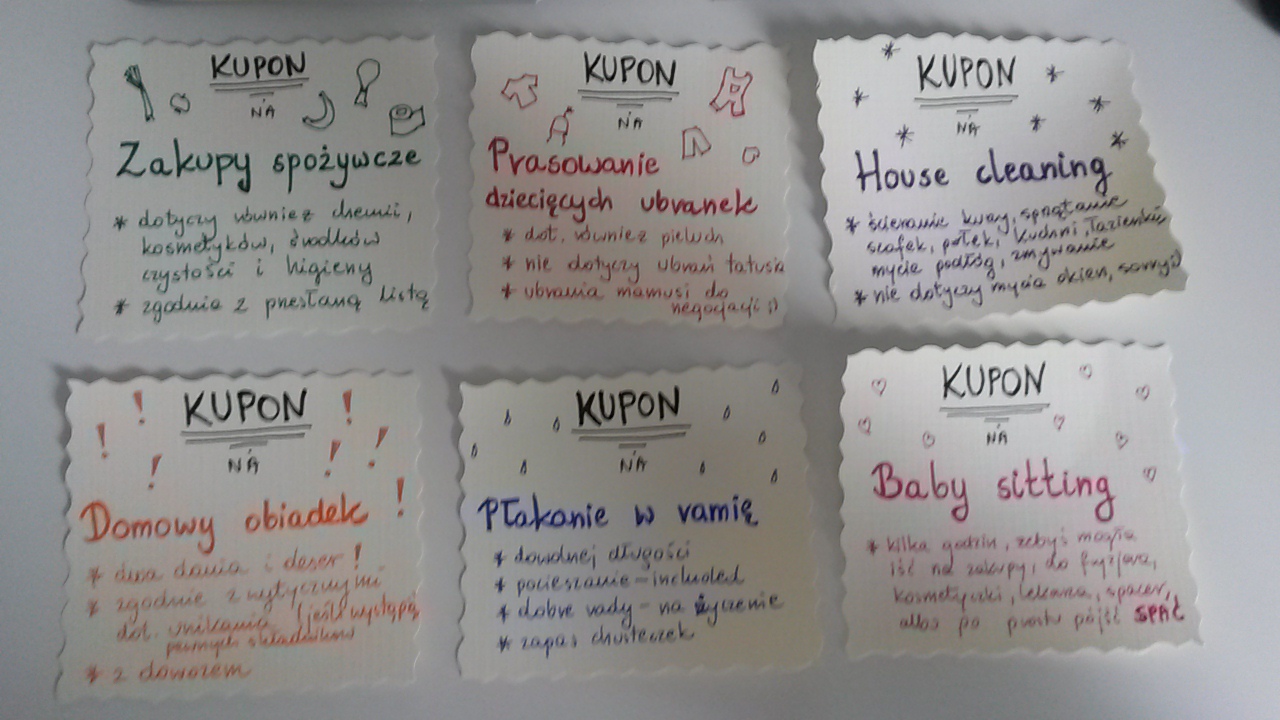 KUPON
NA
Zakupy spożywcze
* dotyczy również chemii,
kosmetyków, środków
czystości i higieny
* zgodnie z przesłaną listą
KUPON
NA
Prasowanie
dziecięcych ubranek
* dot. również pieluch
* nie dotyczy ubrań tatusia
* ubrania mamusi do
negocjacji ;)
KUPON
NA
House cleaning
* ścieranie kurzy, sprzątanie
szafek, półek, kuchni, łazienki,
mycie podłóg, zmywanie
* nie dotyczy mycia okien, sorry:)
KUPON
NA
Domowy obiadek!
* dwa dania i deser!
* zgodnie z wytycznymi
dot. unikania (jeśli wystąpią)
pewnych składników
* z dowozem
KUPON
NA
Płakanie w ramię
* dowolnej długości
* pocieszanie - included
* dobre rady - na życzenie
* zapas chusteczek
KUPON
NA
Baby sitting
* kilka godzin, żebyś mogła
iść na zakupy, do fryzjera,
kosmetyczki, lekarza, spacer,
albo po prostu pójść SPAĆ